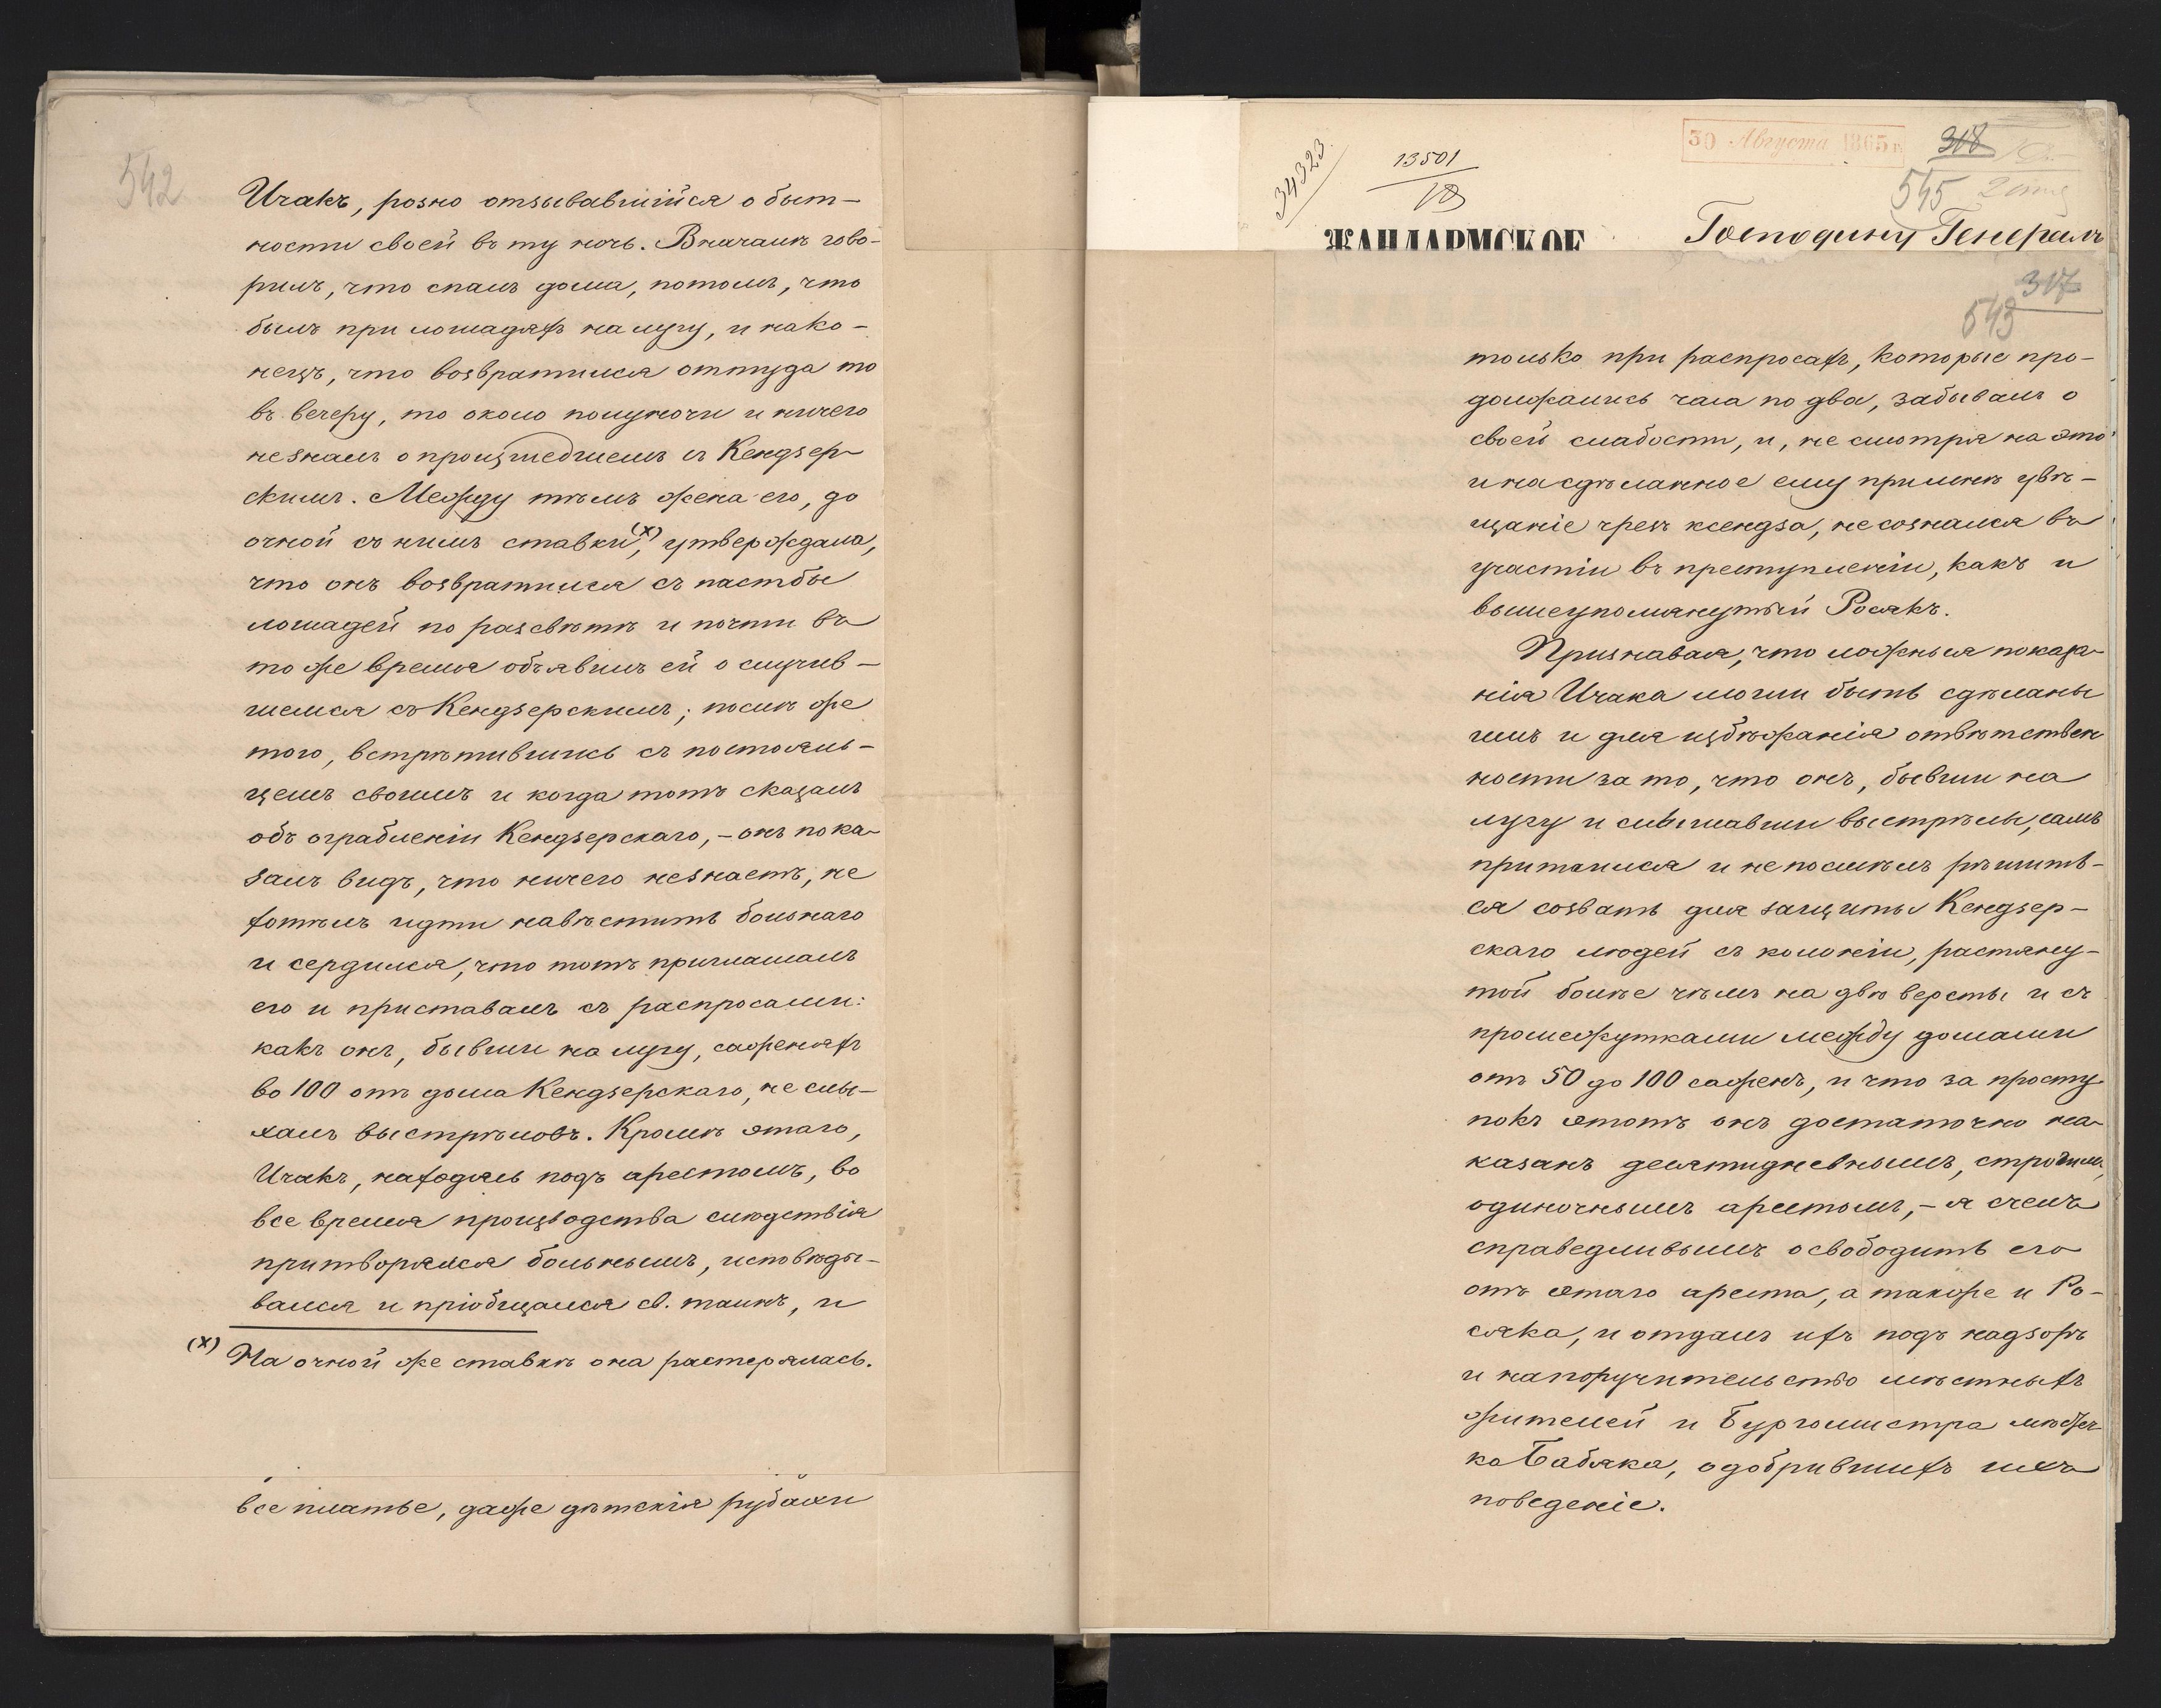 542
Ичакъ, розно отзывавшійся о быт-
ности своей въ ту ночь. Вначалѣ гово-
рилъ, что спалъ дома, потомъ, что
былъ при лошадяхъ на лугу, и нако-
нецъ, что возвратился оттуда то
въ вечеру, то около полуночи и ничего
незналъ о происшедшемъ съ Кендзер-
скимъ. Между тѣмъ жена его, до
очной съ нимъ ставки(х), утверждала,
что онъ возвратился съ пастбы
лошадей по разсвѣтѣ и почти въ
тоже время объявилъ ей о случив-
шемся съ Кендзерскимъ; послѣ же
того, встрѣтившись съ постояль-
цемъ своимъ и когда тотъ сказалъ
объ ограбленіи Кендзерскаго, - онъ пока-
залъ видъ, что ничего незнаетъ, не
хотѣлъ идти навѣстить больнаго
и сердился, что тотъ приглашалъ
его и приставалъ съ распросами:
какъ онъ, бывши на лугу, саженяхъ
во 100 отъ дома Кендзерскаго, не слы-
халъ выстрѣловъ. Кромѣ этаго,
Ичакъ, находясь подъ арестомъ, во
все время производства слѣдствія
притворялся больнымъ, исповѣды-
вался и пріобщался св. таинъ, и
(х) На очной же ставкѣ она растерялась.
все платье, даже дѣтскія рубашки
34323.
13501
30 Августа 1865 г.
318
545
ЖАНДАРМСКОЕ
Господину Генералъ
317
543
только при распросахъ, которые про-
должались часа по два, забывалъ о
своей слабости, и, не смотря на это
и на сдѣланное ему примѣнѣ увѣ-
щаніе чрезъ ксендза, не сознался въ
участіи въ преступленіи, какъ и
вышеупомянутый Росякъ.
Признавая, что ложныя показа-
нія Ичака могли быть сдѣланы
имъ и для избѣжанія отвѣтствен
ности за то, что онъ, бывши на
лугу и слышавши выстрѣлы, самъ
притаился и не посмѣлъ рѣшить-
ся созвать для защиты Кендзер-
скаго людей съ колоніи, растяну-
той болѣе чѣмъ на двѣ версты и съ
промежутками между домами
отъ 50 до 100 саженъ, и что за просту
покъ этотъ онъ достаточно на-
казанъ десятидневнымъ, строгимъ,
одиночнымъ арестомъ, - я счелъ
справедливымъ освободить его
отъ этаго ареста, а также и Ро-
сяка, и отдалъ ихъ подъ надзоръ
и напоручительство мѣстныхъ
жителей и Бургомистра мѣстеч-
ка Бабяка, одобрившихъ ихъ
поведеніе.